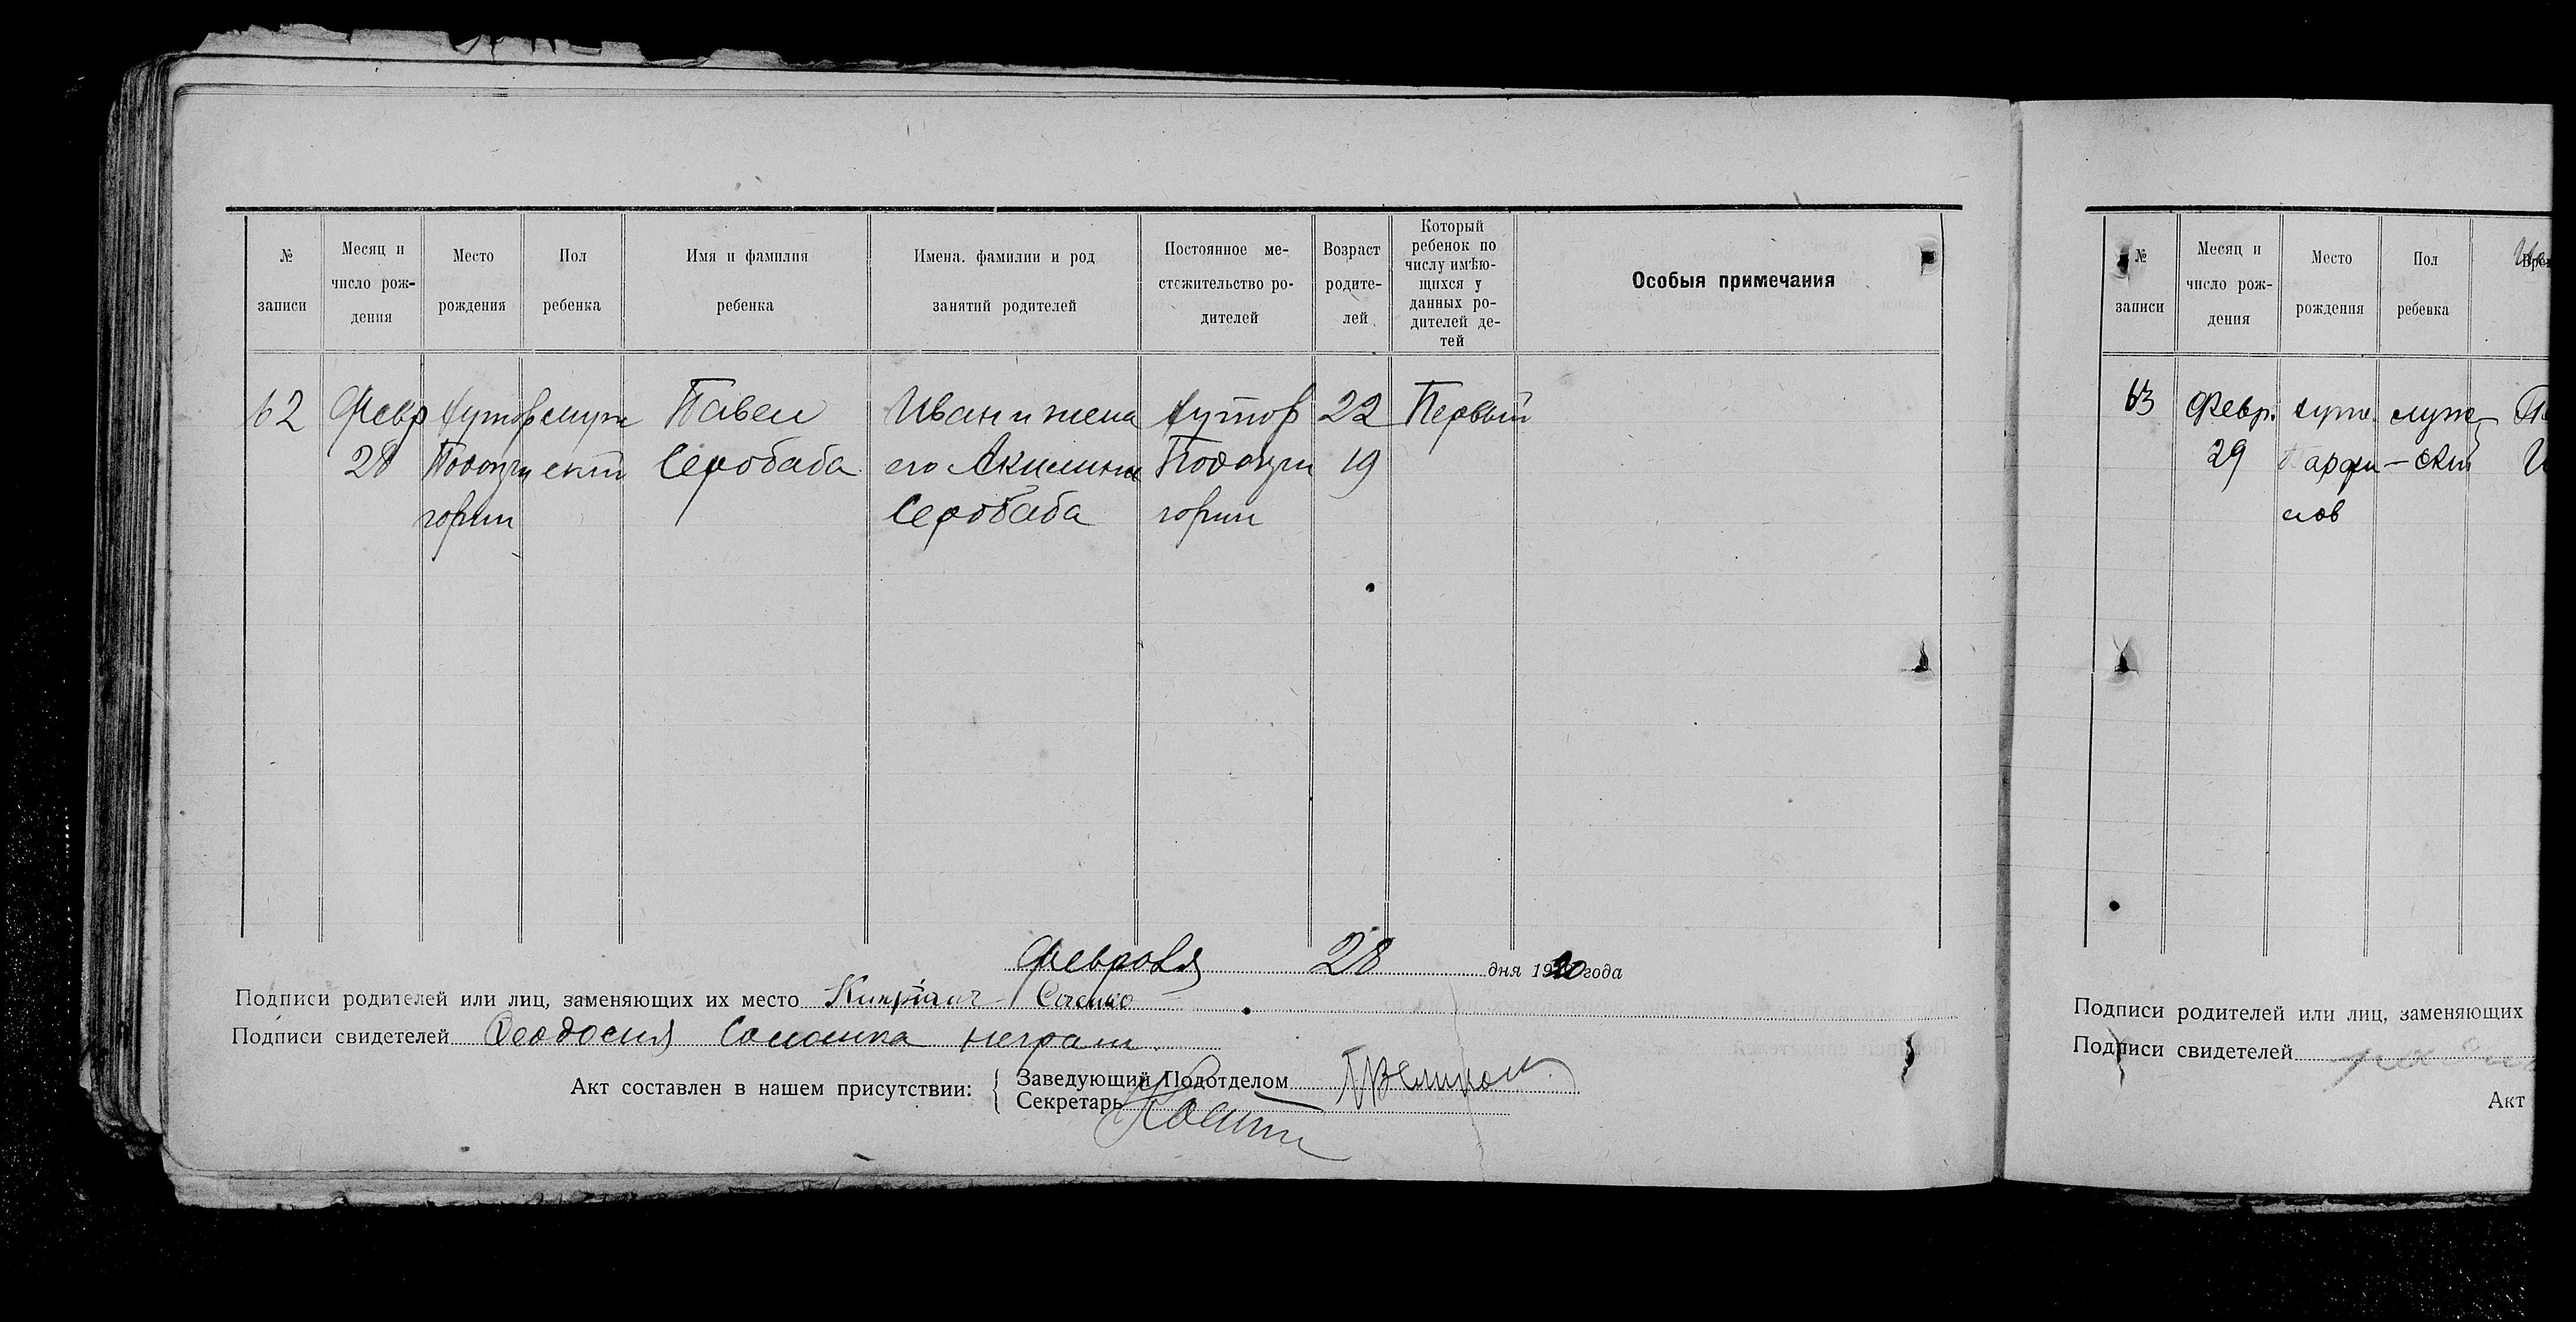 № записи
Месяц и число рож-дения
Место рождения
Пол ребенка
Имя и фамилия ребенка
Имена. фамилии и род занятий родителей
Постоянное ме-стожительство ро-дителей
Возраст родите-лей
Который ребенок по числу имѣю-щихся у данных ро-дителей де-тей
Особыя примечания
62 Февр хутор мужс Павел Иван и жена хутор 22 Первый
28 ский Серобаба его Акилина 19
горни Серобаба горни
Февраля 28 дня 1920 года
Подписи родителей или лиц, заменяющих их место
Подписи свидетелей Феодосия неграм.
Акт составлен в нашем присутствии:
Заведующий Подотделом
Секретарь
№ записи
Месяц и число рож-дения
Место рождения
Пол ребенка
63 Февр. хут. муж-
29 Парфи -ский
лов
Подписи родителей или лиц, заменяющих
Подписи свидетелей
Акт